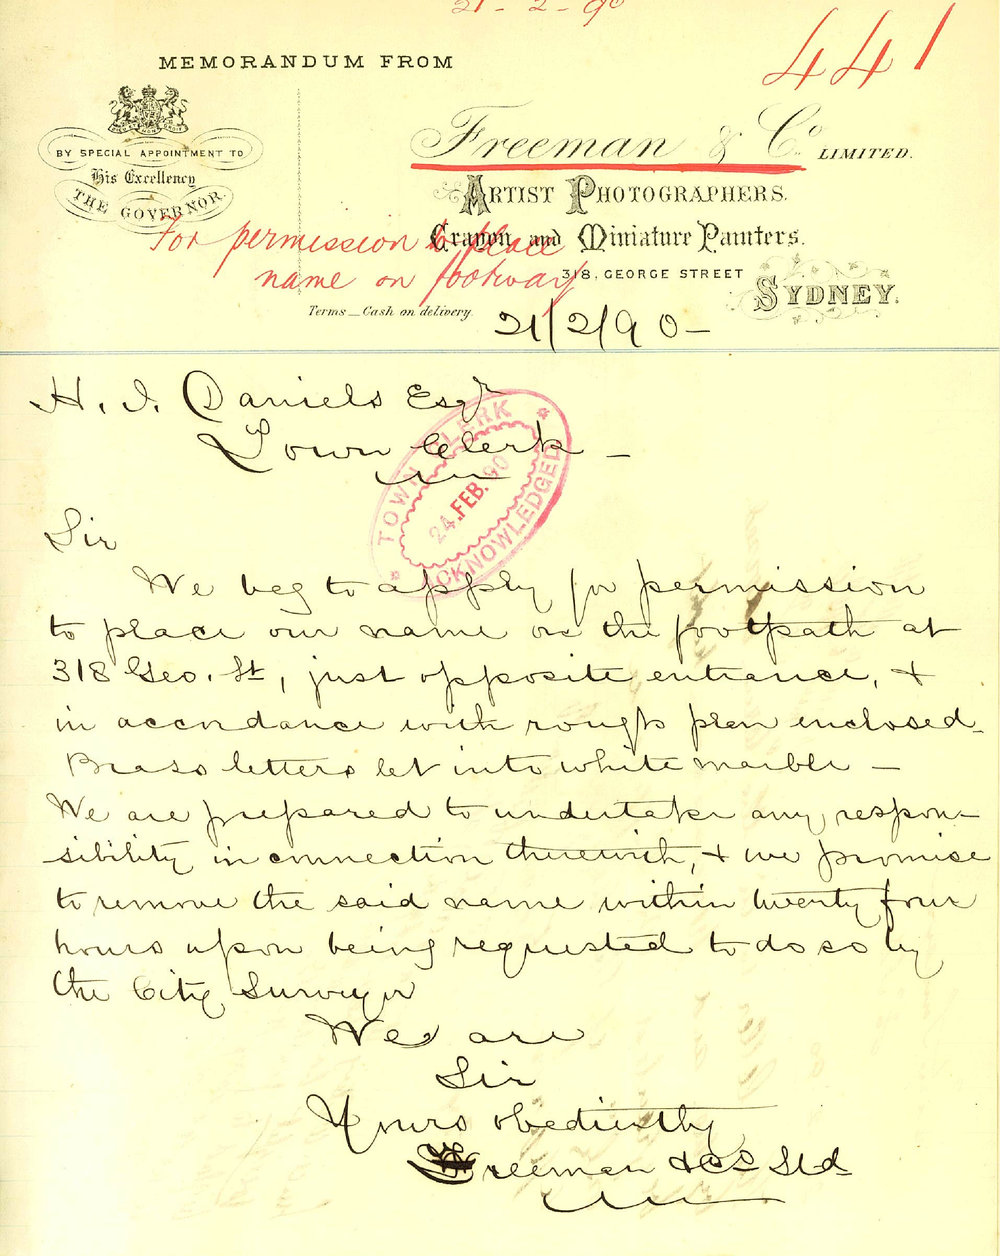 21-2-90
441
MEMORANDUM FROM
BY SPECIAL APPOINTMENT TO
His Excellency
THE GOVERNOR.
Freeman & Co LIMITED.
ARTIST PHOTOGRAPHERS.
Crayon and Miniature Painters.
For permission to place
name on footway
318, GEORGE STREET
SYDNEY.
Terms _ Cash on delivery.
21/2/90-
H. J. Daniels Esqr
Town Clerk -
TOWN CLERK
24.FEB.90
ACKNOWLEDGED
Sir
We beg to apply for permission
to place our name on the footpath at
318 Geo. St, just opposite entrance, &
in accordance with rough plan enclosed-
Brass letters let into white marble -
We are prepared to undertake any respon-
sibility in connection therewith, & we promise
to remove the said name within twenty four
hours upon being requested to do so by
the City Surveyor
We are
Sir
Yours obediently
Freeman & Co Ltd